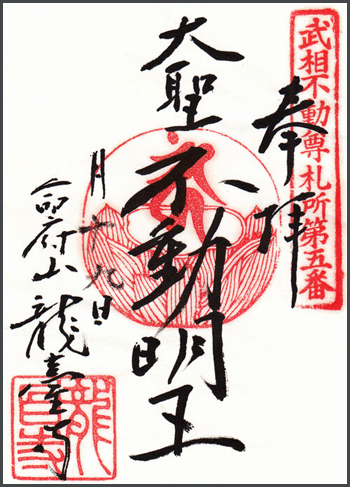 武相不動尊札所第五番
奉拝
大聖不動明王
月十九日
山龍臺寺